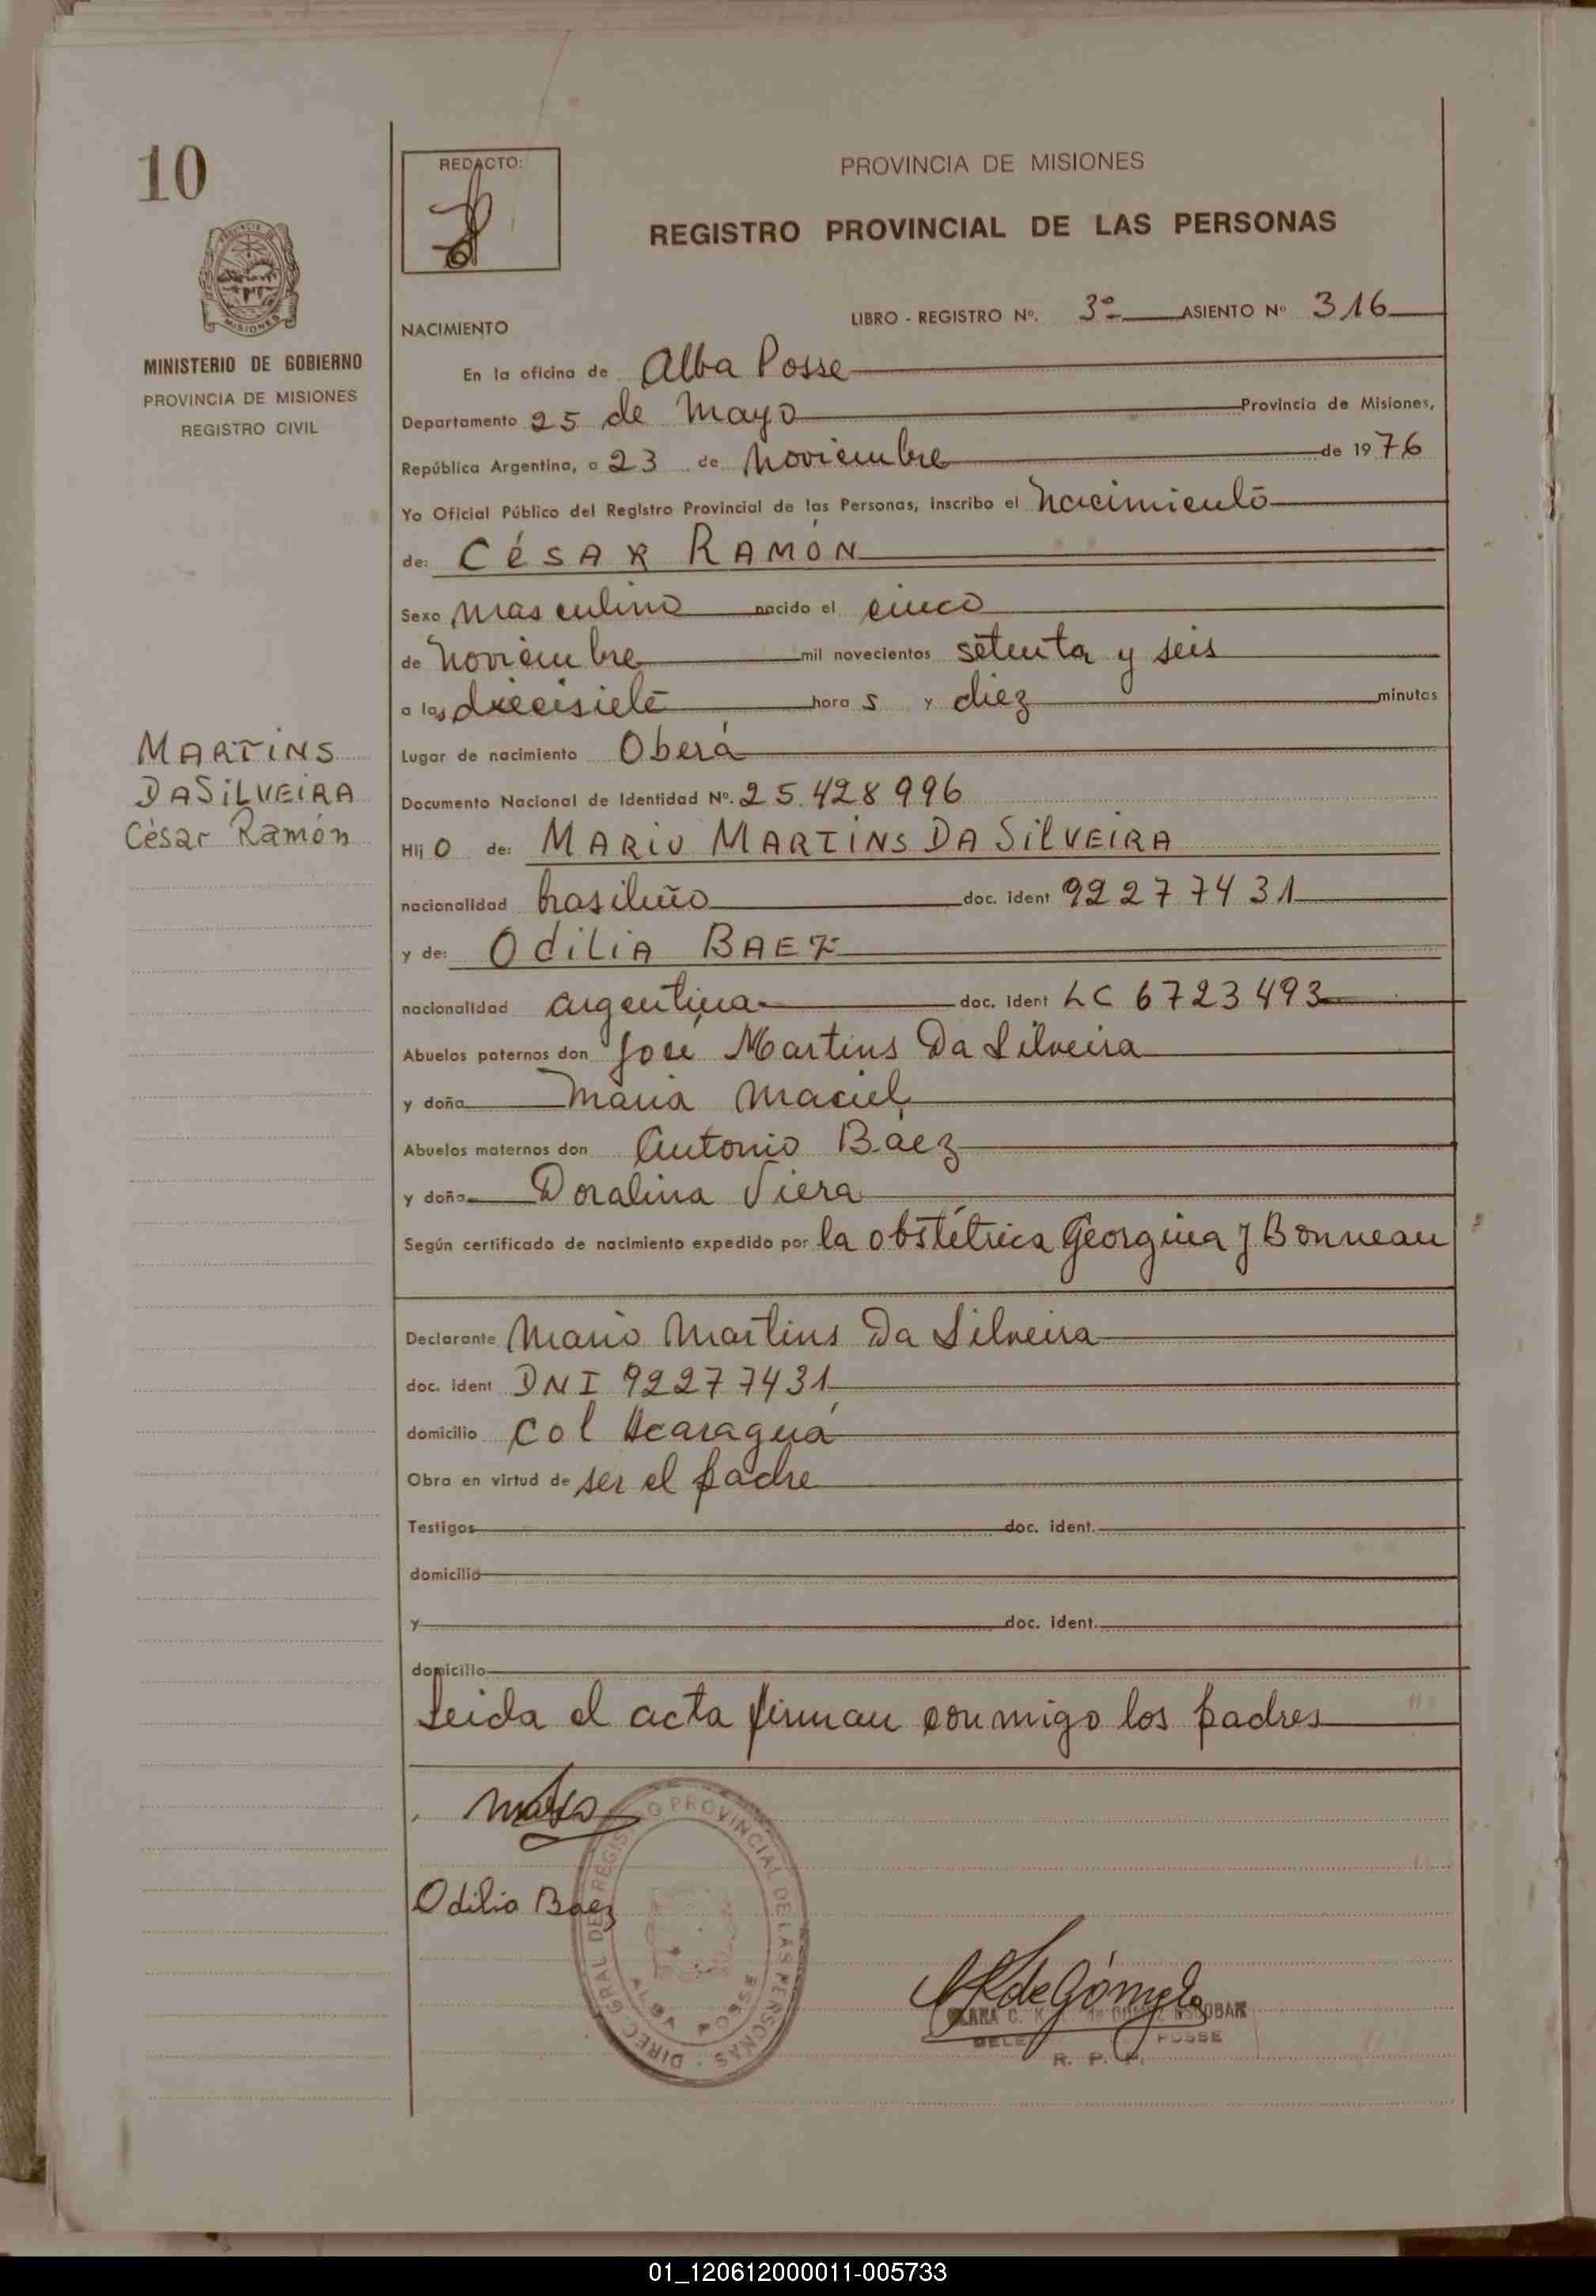 10
REDACTO:
PROVINCIA DE MISIONES
REGISTRO PROVINCIAL DE LAS PERSONAS
MISIONES
MINISTERIO DE GOBIERNO
PROVINCIA DE MISIONES
REGISTRO CIVIL
NACIMIENTO
LIBRO - REGISTRO Nº. 3º ASIENTO Nº 316
En la oficina de Alba Posse
Departamento 25 de Mayo Provincia de Misiones,
República Argentina, a 23 de Noviembre de 1976
Yo Oficial Público del Registro Provincial de las Personas, inscribo el nacimiento
de: CÉSAR RAMÓN
Sexo masculino nacido el cinco
de noviembre mil novecientos setenta y seis
a las diecisiete horas y diez minutos
Lugar de nacimiento Oberá
MARTINS
DASILVEIRA
César Ramón
Documento Nacional de Identidad Nº. 25.428996
Hijo de: MARIO MARTINS DA SILVEIRA
nacionalidad brasileño doc. ident 92277431
y de: ODILIA BAEZ
nacionalidad argentina doc. Ident LC 6723493
Abuelos paternos don José Martins Da Silveira
y doña Maria Maciel
Abuelos maternos don Antonio Báez
y doña Doralina Viera
Según certificado de nacimiento expedido por la obstétrica Georgina J Bonneau
Declarante Mario Martins Da Silveira
doc. ident DNI 92277431
domicilio Col Acaraguá
Obra en virtud de ser el padre
Testigos doc. ident.
domicilio
y doc. ident.
domicilio
Leida el acta firman conmigo los padres
Odilia Baez
DIREC. GRAL DE REGISTRO PROVINCIAL DE LAS PERSONAS
ALBA POSSE
de Gómez
ESCOBAR
POSSE
R. P. P.
01_120612000011-005733